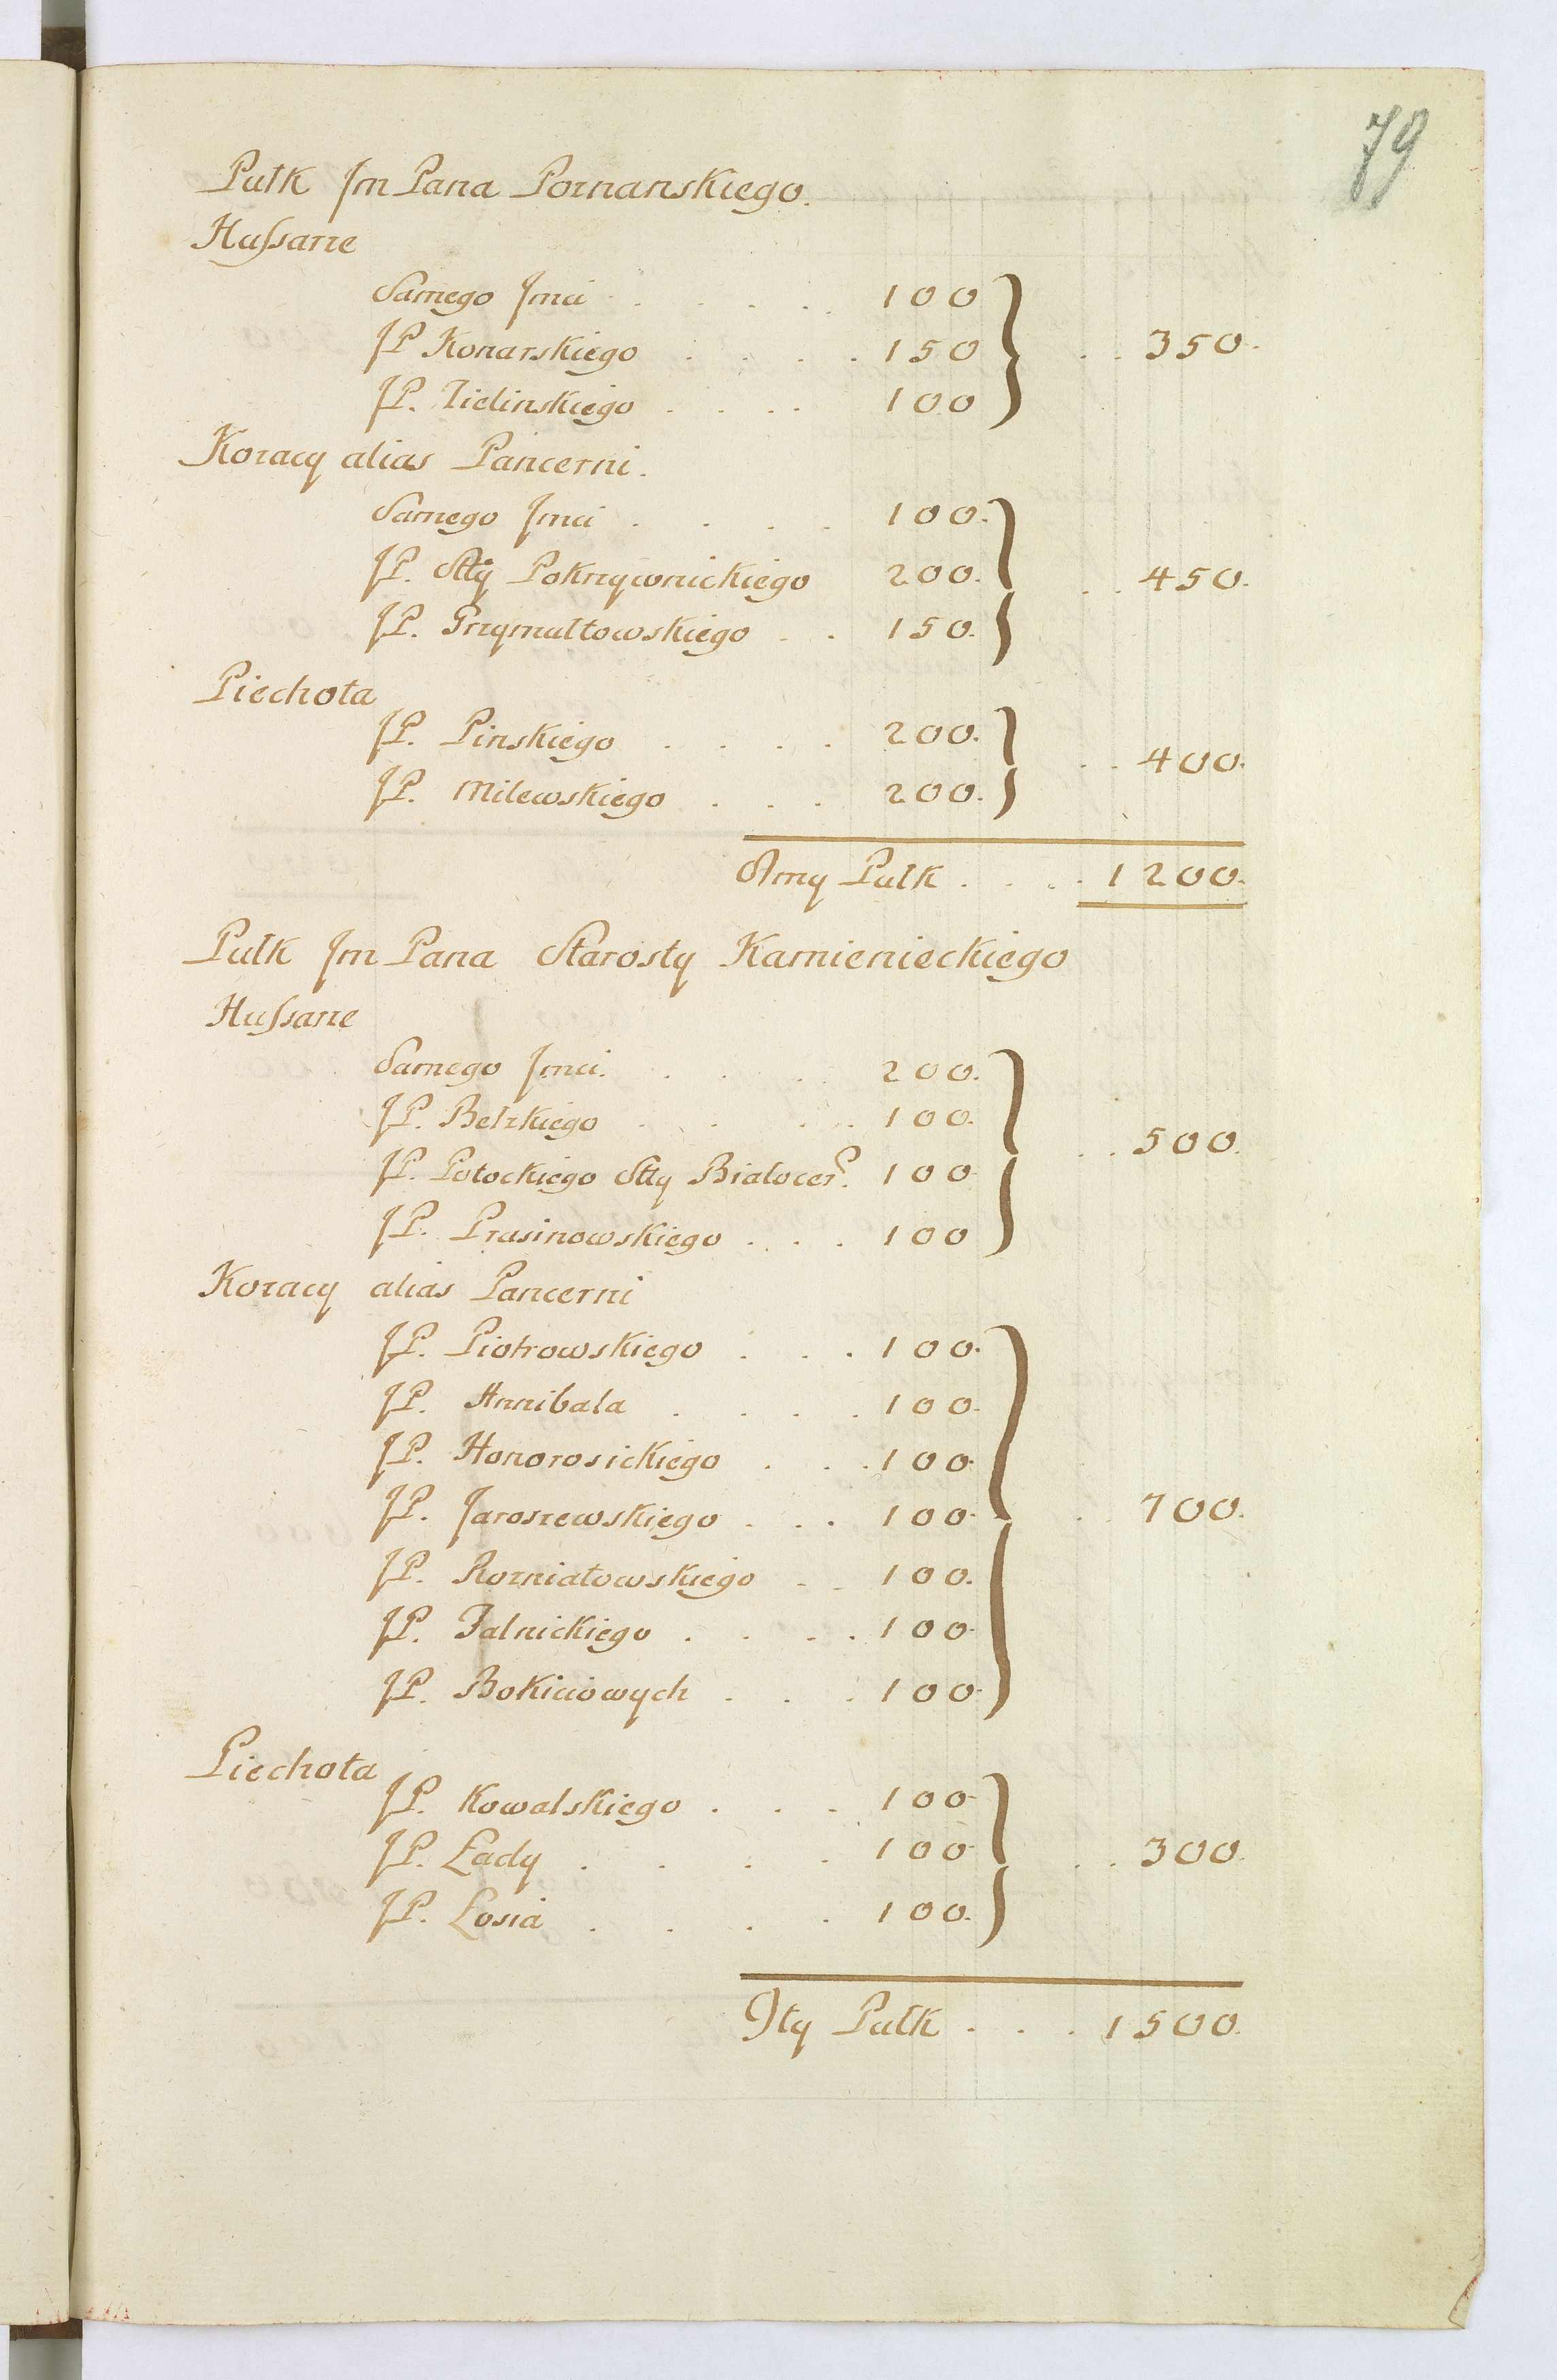 79
Pułk Jm Pana Poznanskiego.
Hussarze
Samego Jmci . . . . 100
JP Konarskiego . . . . 150 . . 350.
JP. Zielinskiego . . . . 100
Kozacy alias Pancerni.
Samego Jmci . . . . 100.
JP. Stty Pokrzywnickiego 200. . . 450.
JP. Grzymułtowskiego . . 150.
Piechota
JP. Pinskiego . . . . 200.
. . 400.
JP. Milewskiego . . . 200.
8my Pułk . . . . 1200.
Pułk Jm Pana Starosty Kamienieckiego
Hussarze
Samego Jmci. . . . . 200.
JP. Bełzkiego . . . . 100.
. . 500.
JP. Potockiego Stty Białocer. 100
JP. Prasinowskiego . . . 100
Kozacy alias Pancerni
JP. Piotrowskiego . . . 100.
JP. Annibala . . . . 100.
JP. Honorosickiego . . . 100
JP. Jaroszewskiego . . . 100 . . 700.
JP. Rozniatowskiego . . 100.
JP. Falnickiego . . . . 100
JP. Bokiiowych . . . 100
Piechota
JP. Kowalskiego . . . 100
JP. Łady . . . . 100 . . 300.
JP. Łosia . . . . 100.
9ty Pułk . . . 1500.